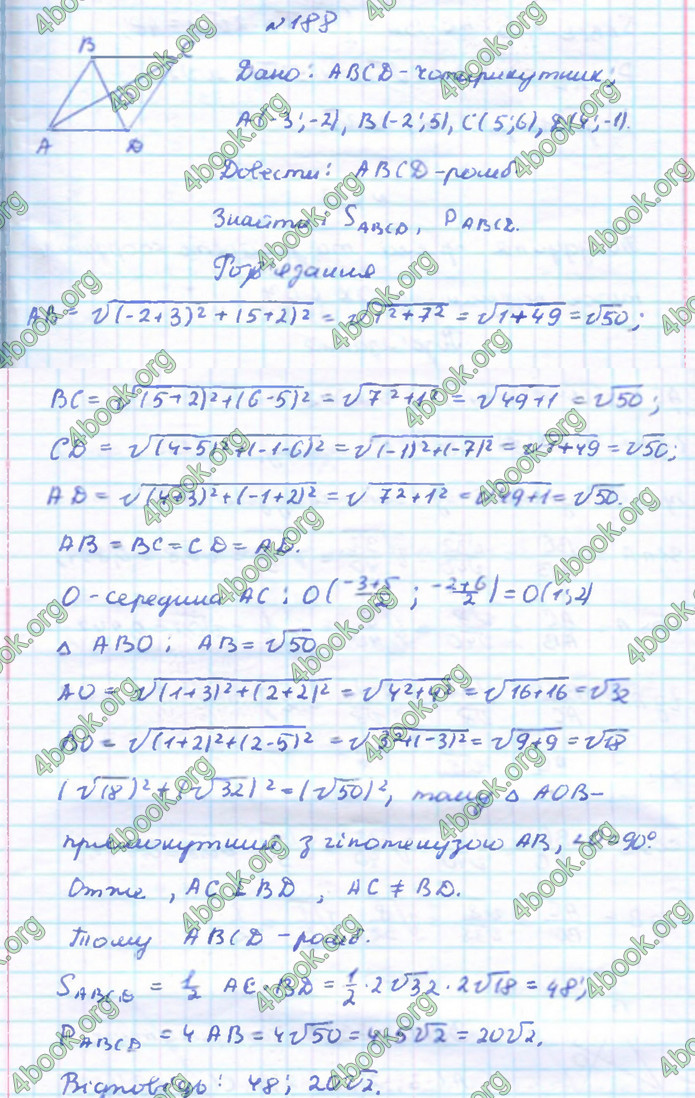 №188
B C
A D
Дано: ABCD - чотирикутник,
A(-3;-2), B(-2;5), C(5;6), D(4;-1).
Довести: ABCD - ромб
Знайти: S_ABCD, P_ABCD.
Розв'язання
AB = √((-2+3)²+(5+2)²) = √(1²+7²) = √(1+49) = √50;
BC = √((5+2)²+(6-5)²) = √(7²+1²) = √(49+1) = √50;
CD = √((4-5)²+(-1-6)²) = √((-1)²+(-7)²) = √(1+49) = √50;
AD = √((4+3)²+(-1+2)²) = √(7²+1²) = √(49+1) = √50.
AB = BC = CD = AD.
O - середина AC; O((-3+5)/2; (-2+6)/2) = O(1;2)
△ ABO; AB = √50
AO = √((1+3)²+(2+2)²) = √(4²+4²) = √(16+16) = √32
BO = √((1+2)²+(2-5)²) = √(3²+(-3)²) = √(9+9) = √18
(√18)²+(√32)² = (√50)², тому △ AOB -
прямокутний з гіпотенузою AB, ∠O=90°
Отже, AC ⊥ BD, AC ≠ BD.
Тому ABCD - ромб.
S_ABCD = 1/2 AC·BD = 1/2·2√32·2√18 = 48;
P_ABCD = 4AB = 4√50 = 4·5√2 = 20√2.
Відповідь: 48; 20√2.
4book.org